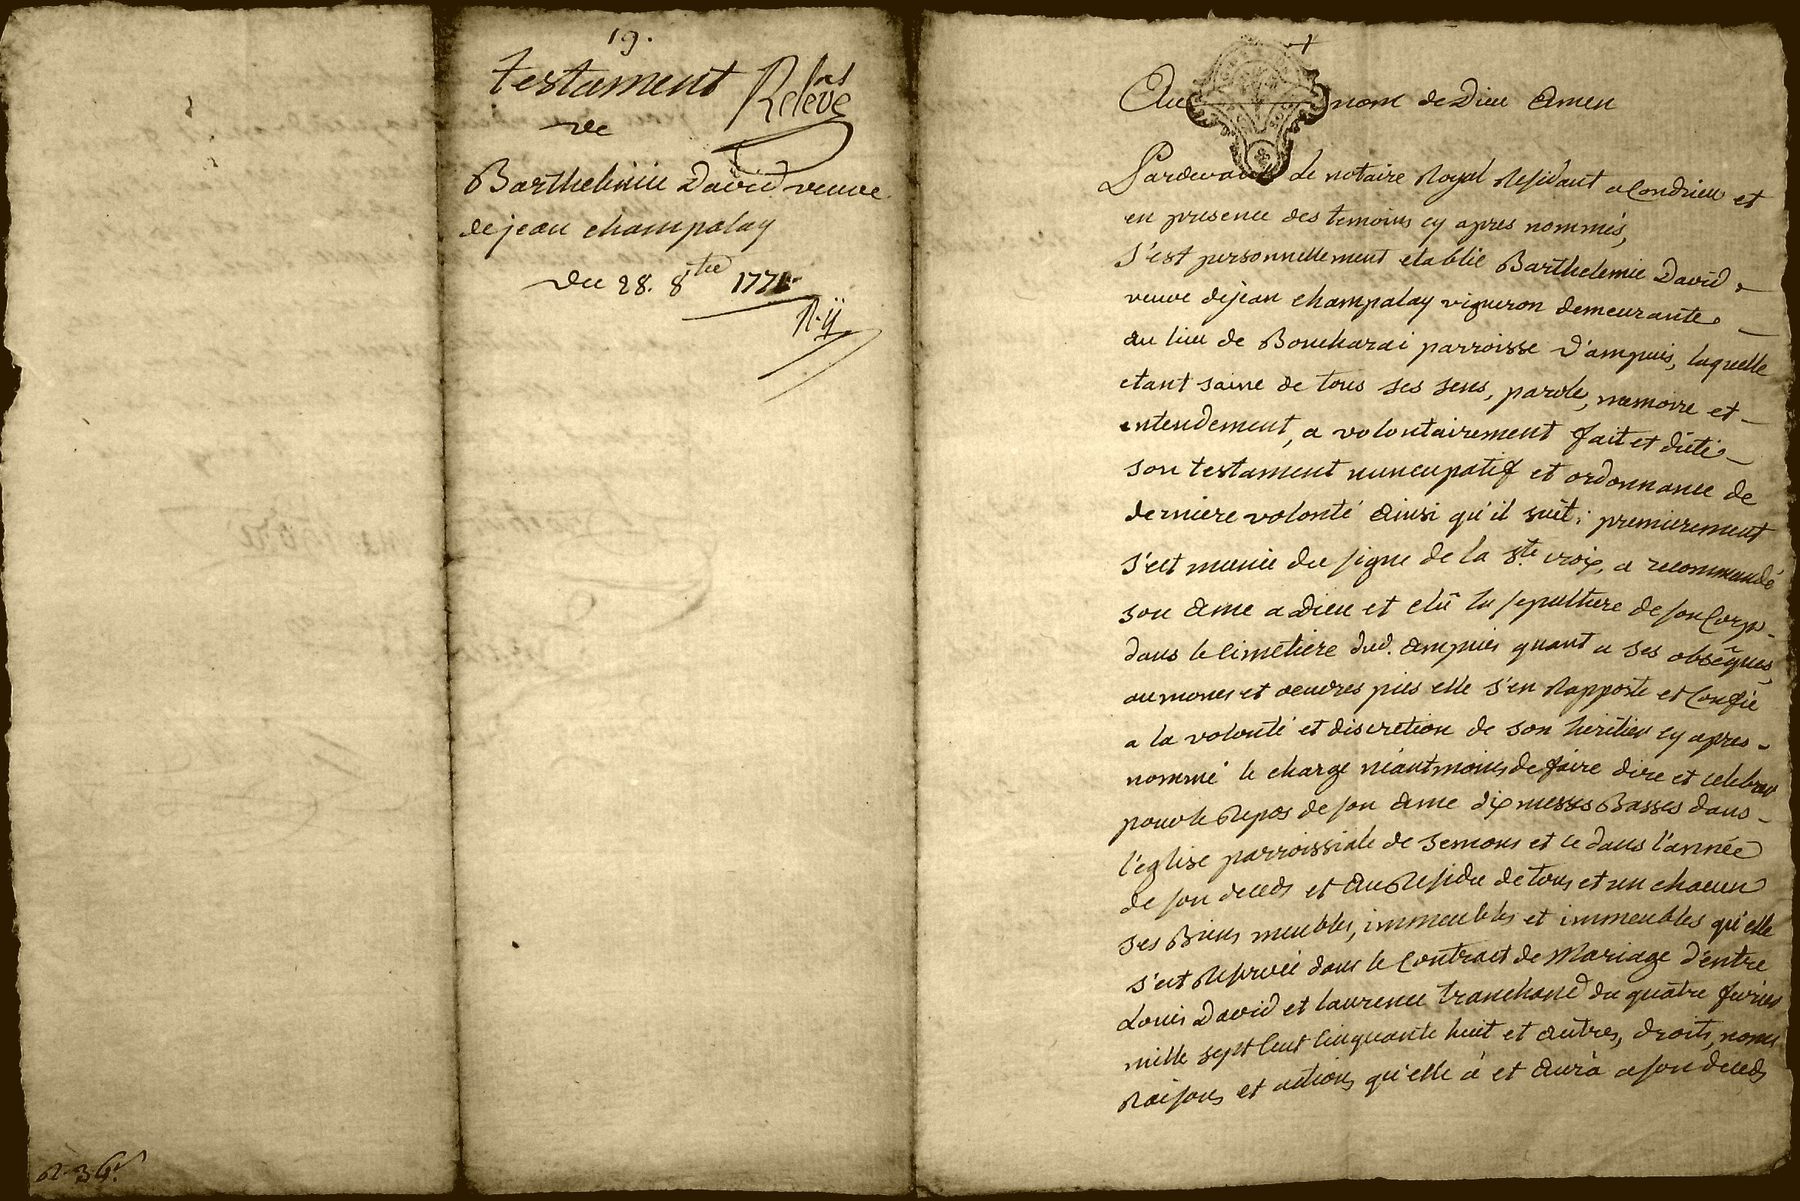 19.
testament
de
Relevé
Barthelemie David veuve
de jean champalay
du 28. 8bre 1771
R. ij
Au nom de Dieu Amen
Pardevant le notaire Royal Residant a Condrieu et
en presence des temoins cy apres nommés,
s'est personnellement etablie Barthelemie David
veuve de jean champalay vigneron demeurante
au lieu de Boucharai parroisse d'ampuis, laquelle
etant saine de tous ses sens, parole, memoire et
entendement, a volontairement fait et dicté
son testament nuncupatif et ordonnance de
derniere volonté Ainsi qu'il suit; premierement
s'est munie du signe de la Ste croix, a recommandé
son Ame a Dieu et elû la sepulture de son Corps
dans le cimetiere dud. Ampuis quant a ses obseques,
aumones et oeuvres pies elle s'en Rapporte et Confie
a la volonté et discretion de son heritier cy apres
nommé le charge néantmoins de faire dire et celebrer
pour le Repos de son Ame dix messes Basses dans
l'eglise parroissiale de Semons et ce dans l'année
de son deceds et Au Residu de tous et un chacun
ses Biens meubles, immeubles et immeubles qu'elle
s'est Reservée dans le Contract de Mariage d'entre
Louis David et laurence tranchand du quatre fevrier
mille sept Cent Cinquante huit et autres, droits, noms
Raisons et actions qu'elle a et Aura a son deceds
R. 34.